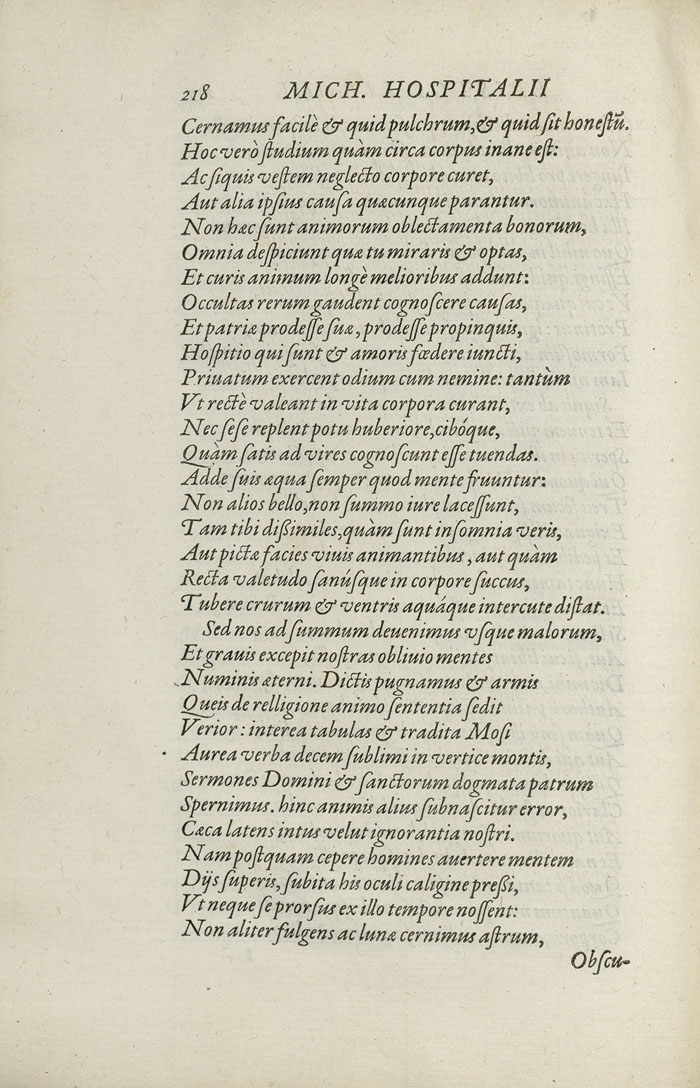 218 MICH. HOSPITALII
Cernamus facilè & quid pulchrum, & quid sit honestũ.
Hoc verò studium quàm circa corpus inane est:
Ac siquis vestem neglecto corpore curet,
Aut alia ipsius causa quæcunque parantur.
Non hæc sunt animorum oblectamenta bonorum,
Omnia despiciunt quæ tu miraris & optas,
Et curis animum longè melioribus addunt:
Occultas rerum gaudent cognoscere causas,
Et patriæ prodesse suæ, prodesse propinquis,
Hospitio qui sunt & amoris fœdere iuncti,
Priuatum exercent odium cum nemine: tantùm
Vt rectè valeant in vita corpora curant,
Nec sese replent potu huberiore, cibóque,
Quàm satis ad vires cognoscunt esse tuendas.
Adde suis æqua semper quod mente fruuntur:
Non alios bello, non summo iure lacessunt,
Tam tibi dißimiles, quàm sunt insomnia veris,
Aut pictæ facies viuis animantibus, aut quàm
Recta valetudo sanúsque in corpore succus,
Tubere crurum & ventris aquáque intercute distat.
Sed nos ad summum deuenimus vsque malorum,
Et grauis excepit nostras obliuio mentes
Numinis æterni. Dictis pugnamus & armis
Queis de relligione animo sententia sedit
Verior: interea tabulas & tradita Mosi
Aurea verba decem sublimi in vertice montis,
Sermones Domini & sanctorum dogmata patrum
Spernimus. hinc animis alius subnascitur error,
Cæca latens intus velut ignorantia nostri.
Nam postquam cepere homines auertere mentem
Dijs superis, subita his oculi caligine preßi,
Vt neque se prorsus ex illo tempore nossent:
Non aliter fulgens ac lunæ cernimus astrum,
Obscu-